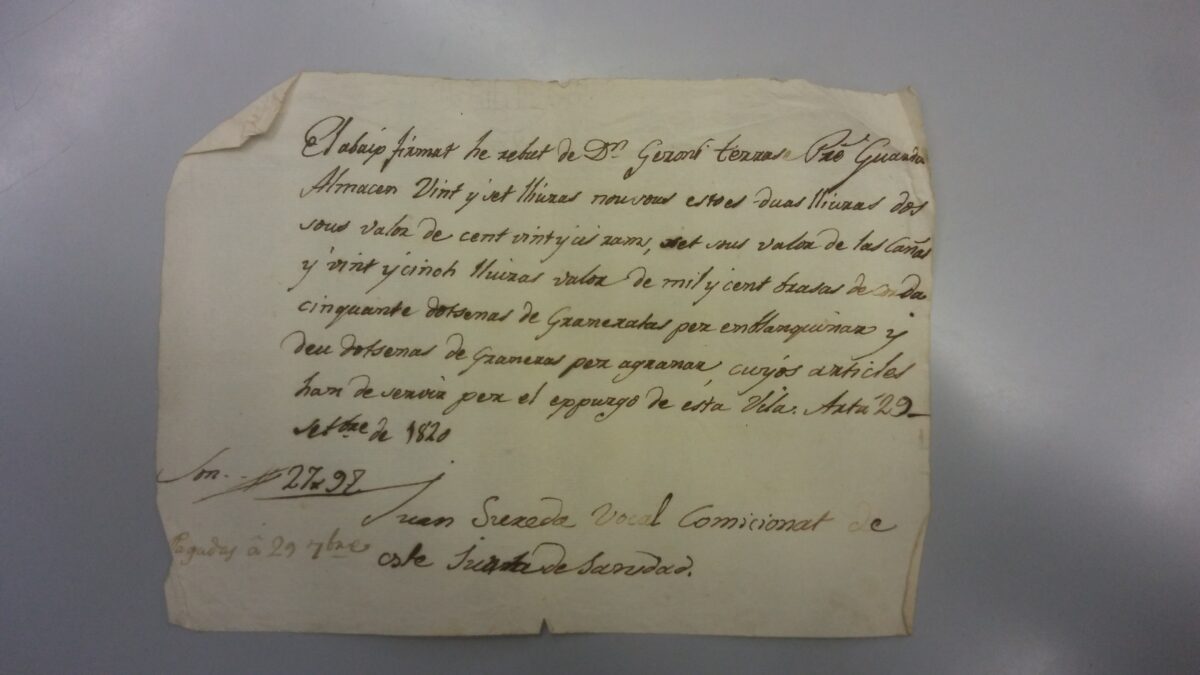 El abaix firmat he rebut de Dn Geroni terrasa Pre Guarda
Almacen Vint y set lliuras nou sous estoes duas lliuras dos
sous valor de cent vint y sis rams, set sous valor de las Cañas
y vint y cinch lliuras valor de mil y cent brasas de corda
cinquante dotsenas de Graneratas per emblanquinar y
deu dotsenas de Graneras per agranar, cuyos articles
han de servir per el expurgo de esta Vila. Artá 29
setbre de 1820
Son
Juan Sureda Vocal Comicionat de
Pagadas â 29 7bre
este Junta de Sanidad.